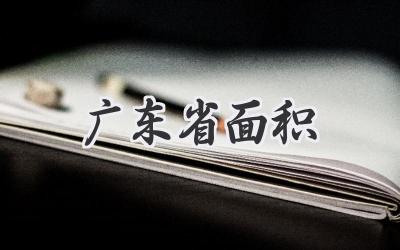 广东省面积